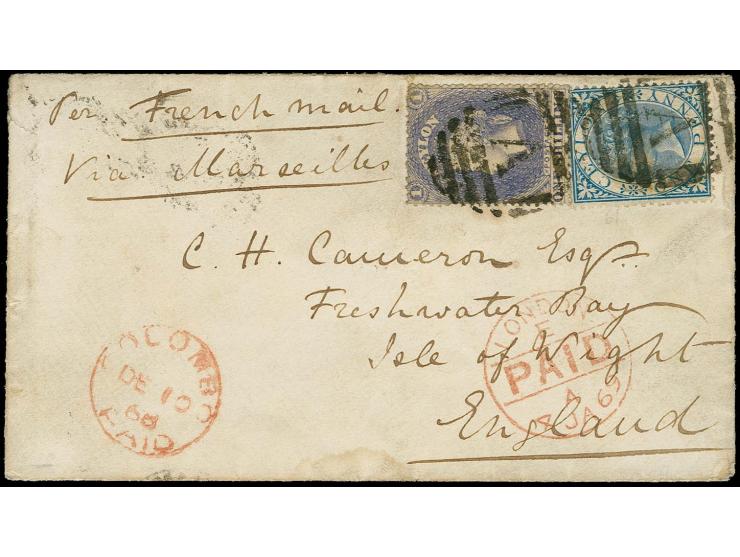 Per French mail.
Via Marseilles
CEYLON
ONE SHILLING
1
1
CEYL
PENNY
A
A
C. H. Cameron Esqr.
Freshwater Bay
Isle of Wight
England
COLOMBO
DE 10
68
PAID
LONDON
E
PAID
A
JA 69